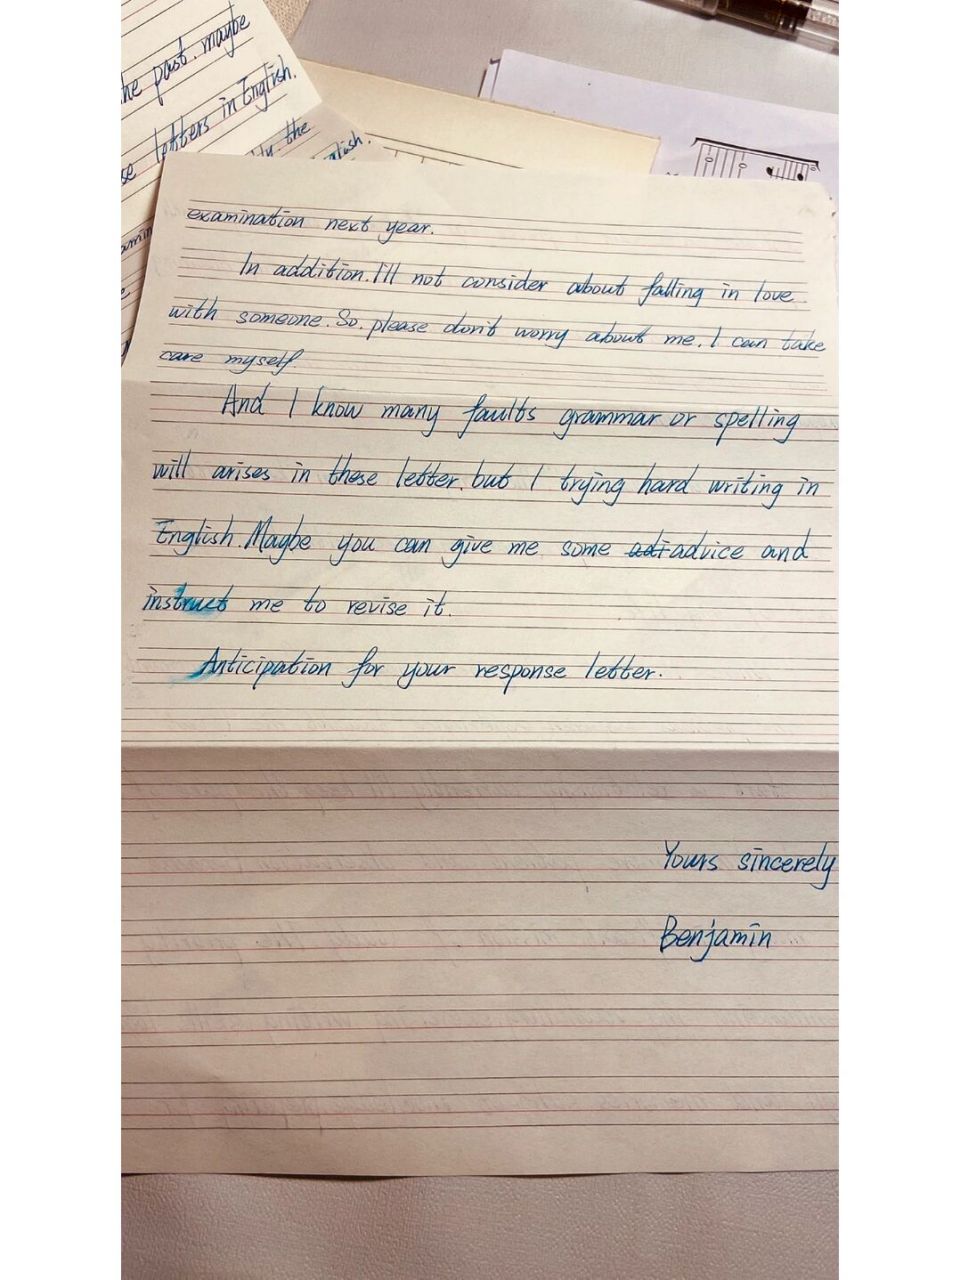 the past. maybe
letters in English.
the
examination next year.
In addition. I'll not consider about falling in love
with someone. So. please don't worry about me. I can take
care myself.
And I know many faults grammar or spelling
will arises in these letter. but I trying hard writing in
English. Maybe you can give me some adi advice and
instruct me to revise it.
Anticipation for your response letter.
Yours sincerely
Benjamin